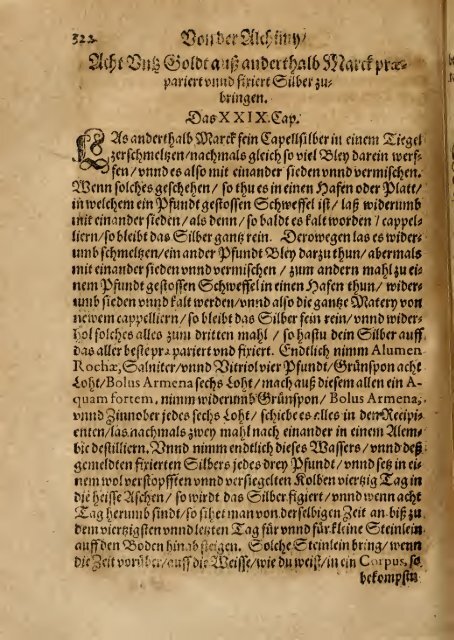 322 Von der Alchimy/
Acht Untz Goldt auß anderthalb Marck præ-
pariert vnnd fixiert Silber zu-
bringen.
Das XXIX. Cap.
LAs anderthalb Marck fein Capellsilber in einem Tiegel
zerschmeltzen/nachmals gleich so viel Bley darein werf-
fen/vnnd es also mit einander sieden vnnd vermischen.
Wenn solches geschehen/ so thu es in einen Hafen oder Platt/
in welchem ein Pfundt gestossen Schweffel ist/ laß widerumb
mit einander sieden/als denn/ so baldt es kalt worden/ cappel-
liern/so bleibt das Silber gantz rein. Derowegen las es wider-
umb schmeltzen/ein ander Pfundt Bley darzu thun/abermals
mit einander sieden vnnd vermischen/ zum andern mahl zu ei-
nem Pfundt gestossen Schweffel in einen Hafen thun/ wider-
umb sieden vnnd kalt werden/vnnd also die gantze Matery von
newem cappelliern/ so bleibt das Silber fein rein/ vnnd wider-
hol solches alles zum dritten mahl/ so hastu dein Silber auff
das aller beste præpariert vnd fixiert. Endtlich nimm Alumen
Rochæ, Salniter/vnnd Vitriol vier Pfundt/Grünspon acht
Loht/Bolus Armena sechs Loht/mach auß diesem allen ein A-
quam fortem, nimm widerumb Grünspon/ Bolus Armena,
vnnd Zinnober jedes sechs Loht/ schiebe es alles in den Recipi-
enten/las nachmals zwey mahl nach einander in einem Alem-
bic destilliern. Vnnd nimm endtlich dieses Wassers/ vnnd deß
gemeldten fixierten Silbers jedes drey Pfundt/vnnd setz in ei-
nem wol verstopfften vnnd versiegelten Kolben viertzig Tag in
die heisse Aschen/ so wirdt das Silber figiert/vnnd wenn acht
Tag herumb sindt/so sihet man von derselbigen Zeit an biß zu
dem viertzigsten vnnd letzten Tag für vnnd für kleine Steinlein
auff den Boden hinab steigen. Solche Steinlein bring/wenn
die Zeit vorüber/auff die Weisse/wie du weist/in ein Corpus, so
bekompstu